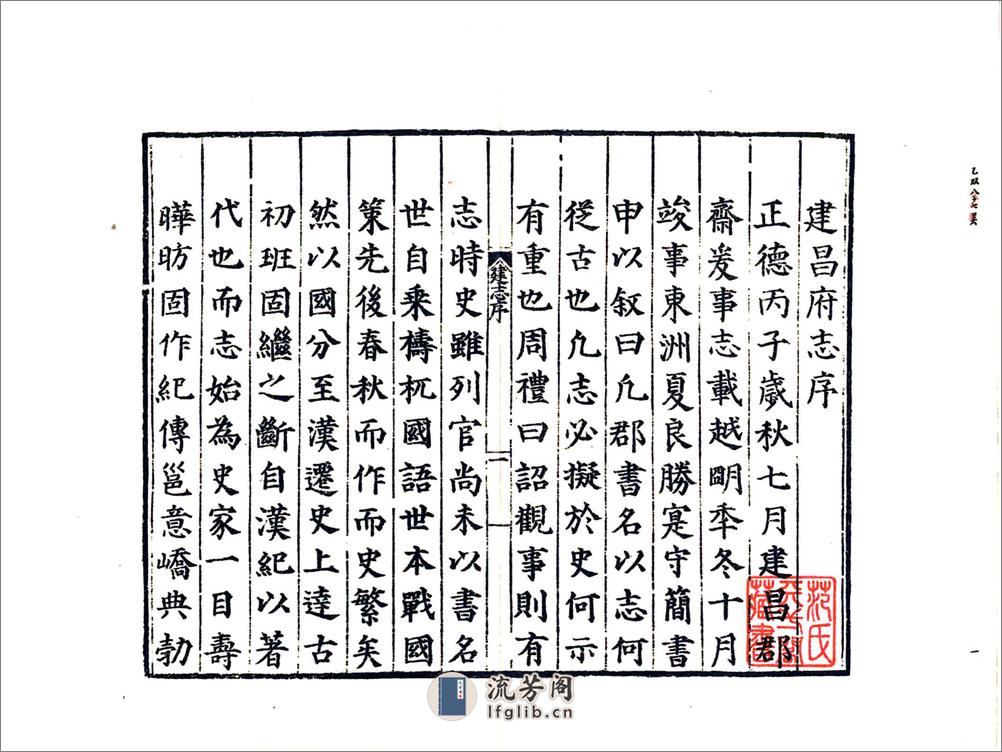 建昌府志序
正德丙子歲秋七月建昌郡
齋爰事志載越明年冬十月
竣事東洲夏良勝寔守簡書
申以叙曰凡郡書名以志何
從古也凡志必擬於史何示
有重也周禮曰詔觀事則有
建志序
一
志時史雖列官尚未以書名
世自乘檮杌國語世本戰國
策先後春秋而作而史繁矣
然以國分至漢遷史上逹古
初班固繼之斷自漢紀以著
代也而志始為史家一目壽
曄昉固作紀傳邕意嶠典勃
范氏天一閣藏書
流芳阁
lfglib.cn